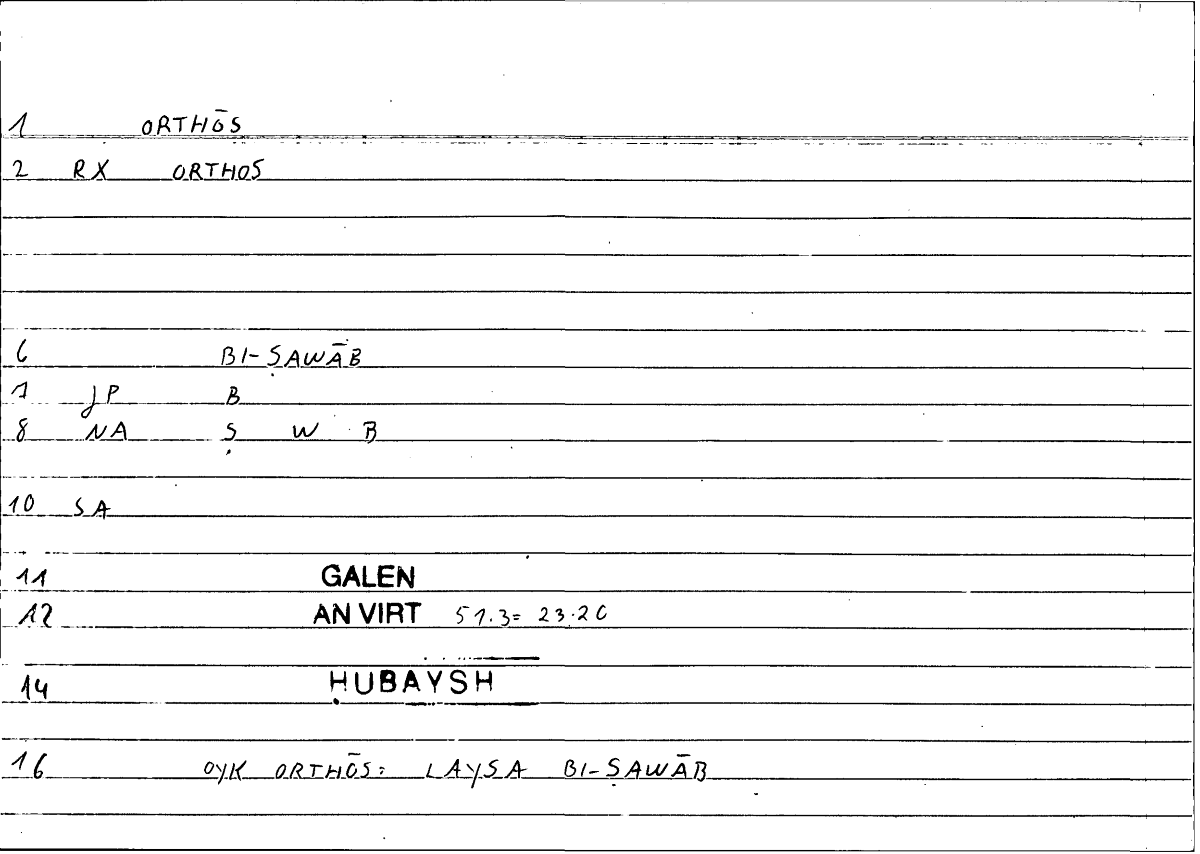 1 ORTHŌS
2 RX ORTHOS
6 BI-ṢAWĀB
7 JP B
8 NA Ṣ W B
10 SA
11 GALEN
12 AN VIRT 51.3= 23.20
14 ḤUBAYSH
16 OYK ORTHŌS: LAYSA BI-ṢAWĀB